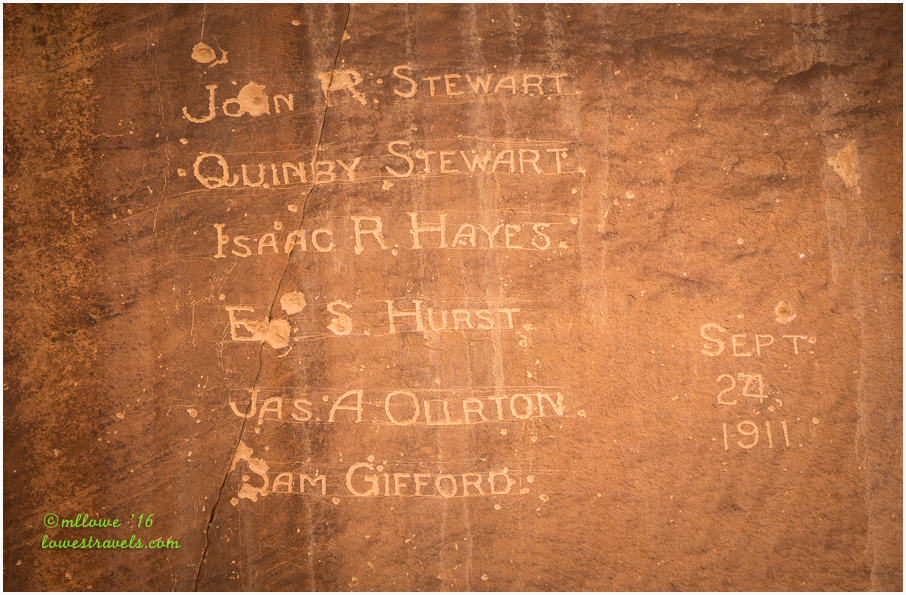 John R. Stewart.
Quinby Stewart.
Isaac R. Hayes.
E. S. Hurst.
Jas A Ollrton
Sam Gifford.
Sept.
24
1911
©mllowe '16
lowestravels.com